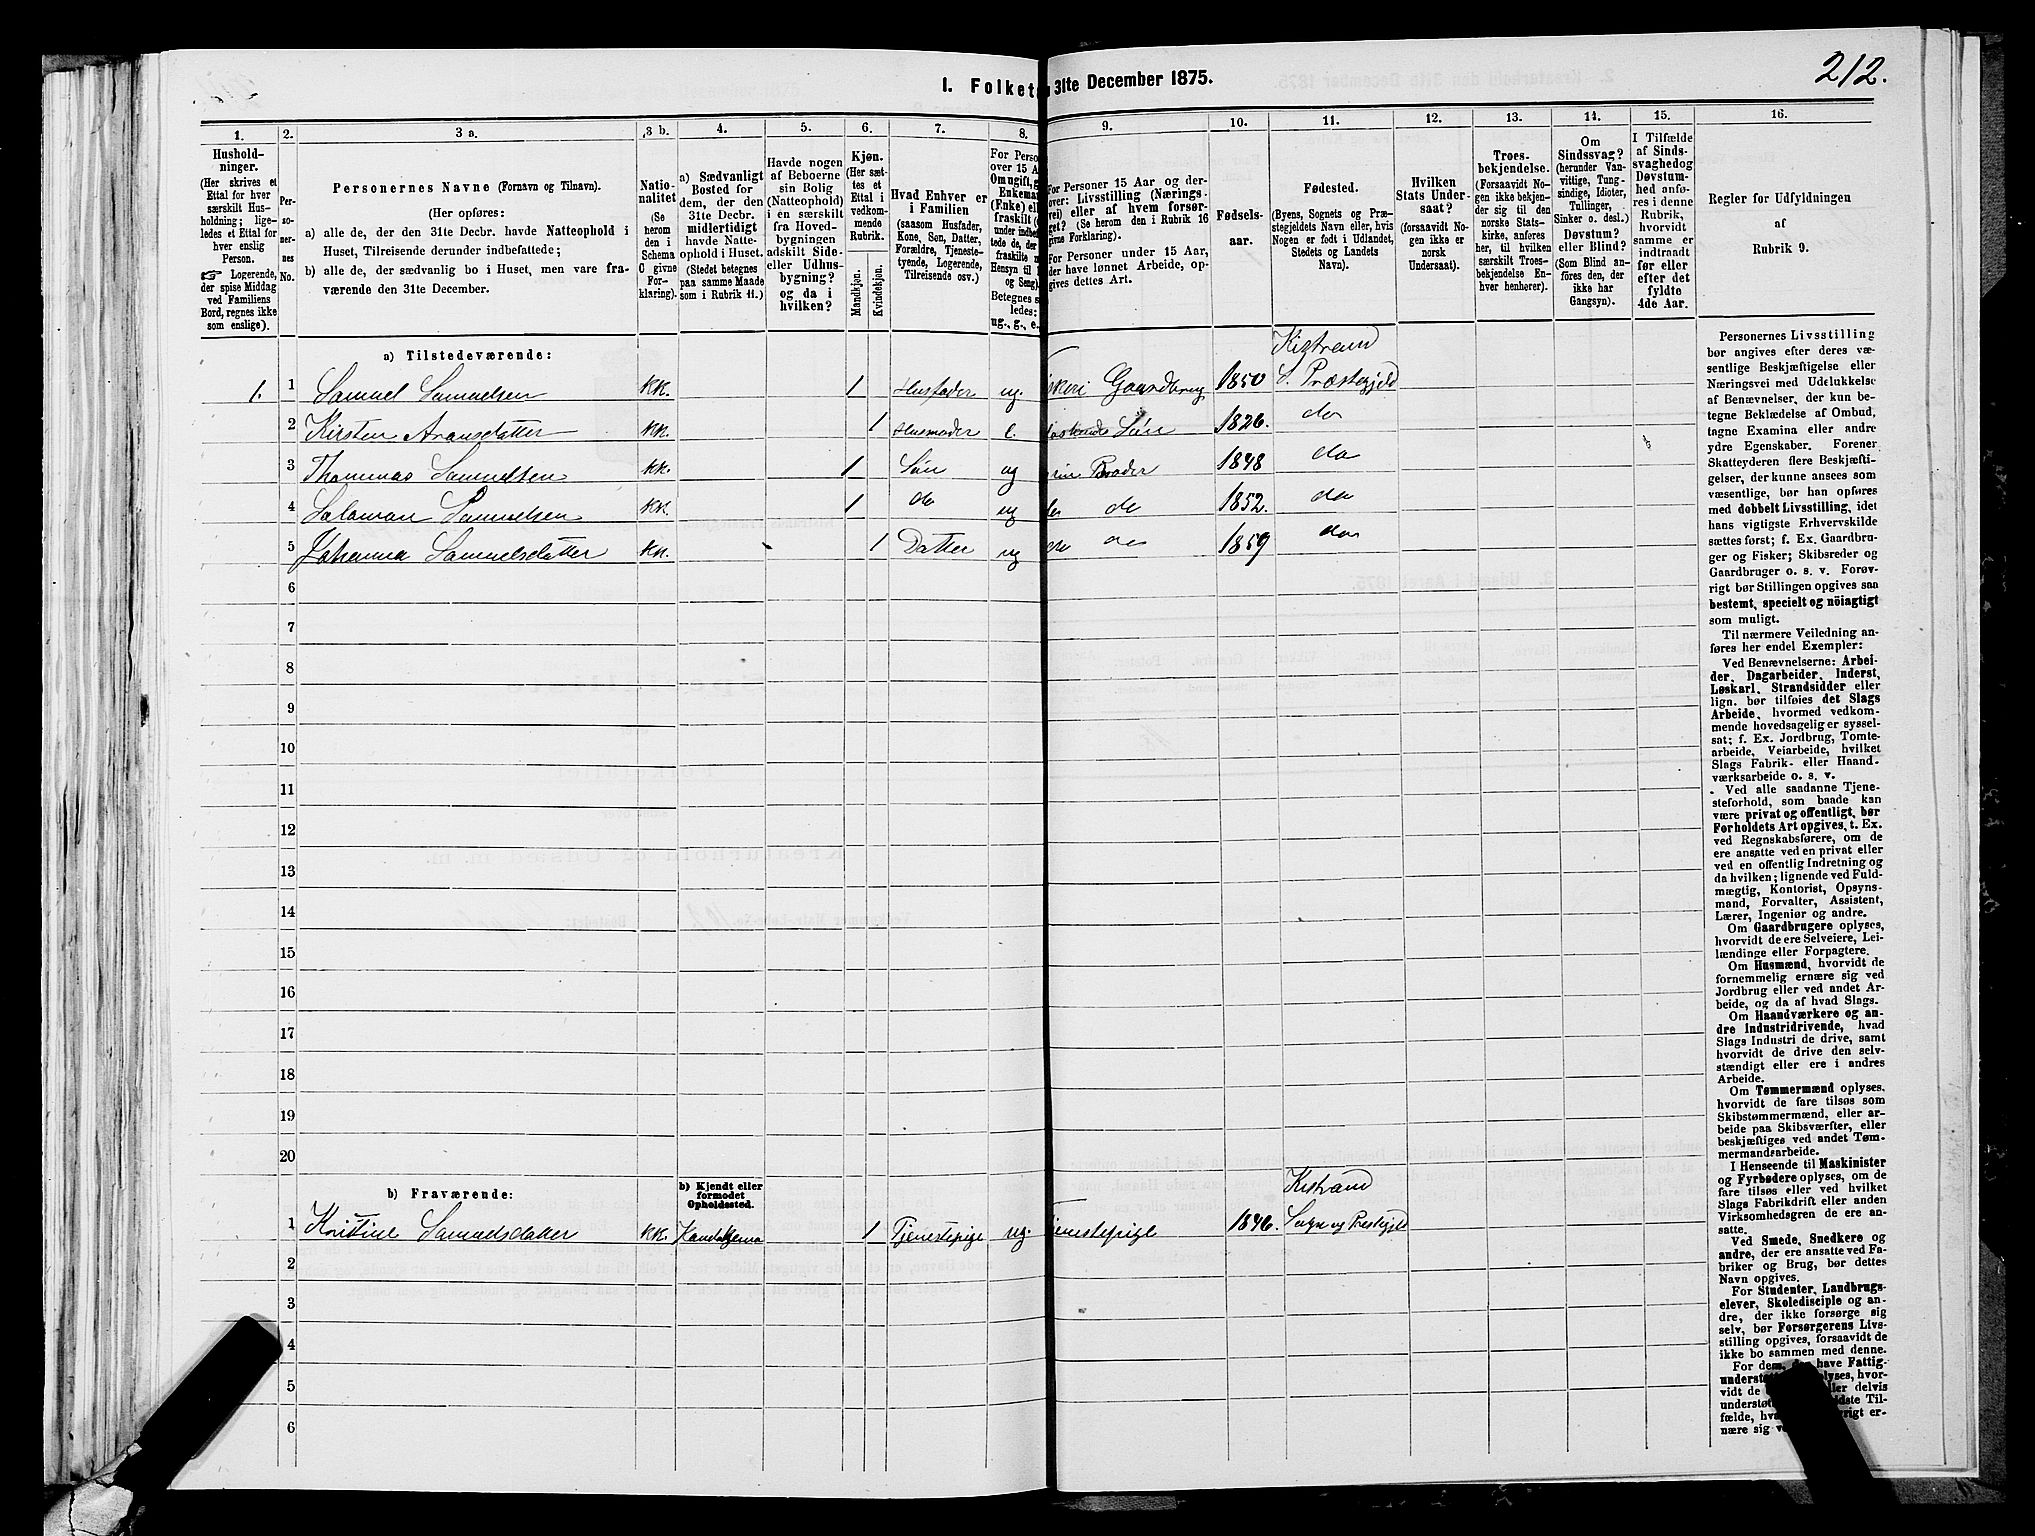 212.
I. Folket 31te December 1875.
1. 2. 3 a. 3 b. 4. 5. 6. 7. 8. 9. 10. 11. 12. 13. 14. 15. 16.
Hushold-
ninger.
(Her skrives et
Ettal for hver
særskilt Hus-
holdning; lige-
ledes et Ettal for
hver enslig
Person.
☞ Logerende,
der spise Middag
ved Familiens
Bord, regnes ikke
som enslige).
Per-
so-
ner-
nes
No.
Personernes Navne (Fornavn og Tilnavn).
(Her opføres:
a) alle de, der den 31te Decbr. havde Natteophold i
Huset, Tilreisende derunder indbefattede;
b) alle de, der sædvanlig bo i Huset, men vare fra-
værende den 31te December.
Natio-
nalitet
(Se
herom
den i
Schema
C givne
For-
klaring).
a) Sædvanligt
Bosted for
dem, der den
31te Decbr.
midlertidigt
havde Natte-
ophold i Huset.
(Stedet betegnes
paa samme Maade
som i Rubrik 11.)
Havde nogen
af Beboerne
sin Bolig
(Natteophold)
i en særskilt
fra Hoved-
bygningen
adskilt Side-
eller Udhus-
bygning?
og da i
hvilken?
Kjøn.
(Her sæt-
tes et
Ettal i
vedkom-
mende
Rubrik.
Mandkjøn.
Kvindekjøn.
Hvad Enhver er
i Familien
(saasom Husfader,
Kone, Søn, Datter,
Forældre, Tjeneste-
tyende, Logerende,
Tilreisende osv.)
For Perso
over 15 A
Omugift, g
Enkema
(Enke) el
fraskilt (
under indbe
tede de, de
fraskilte m
Hensyn til
og Seng).
Betegnes s
ledes:
ug., g., e.
For Personer 15 Aar og der-
over: Livsstilling (Nærings-
vei) eller af hvem forsør-
get? (Se herom den i Rubrik 16
givne Forklaring).
For Personer under 15 Aar,
der have lønnet Arbeide, op-
gives dettes Art.
Fødsels-
aar.
Fødested.
(Byens, Sognets og Præ-
stegjeldets Navn eller, hvis
Nogen er født i Udlandet,
Stedets og Landets
Navn).
Hvilken
Stats Under-
saat?
(forsaavidt No-
gen ikke er
norsk
Undersaat).
Troes-
bekjendelse.
(Forsaavidt No-
gen ikke bekjen-
der sig til den
norske Stats-
kirke, anføres
her, til hvilken
særskilt Troes-
bekjendelse En-
hver henhører).
Om
Sindssvag?
(herunder Van-
vittige, Tung-
sindige, Idioter,
Tullinger,
Sinker o. desl.)
Døvstum?
eller Blind?
(Som Blind an-
føres den, der
ikke har
Gangsyn).
I Tilfælde
af Sinds-
svaghed og
Døvstum-
hed anfø-
res i denne
Rubrik,
hvorvidt
samme er
indtraadt
før eller
efter det
fyldte
4de Aar.
Regler for Udfyldningen
af
Rubrik 9.
a) Tilstedeværende:
Kistrand
1. 1 Samuel Samuelsen KK. 1 Husfader ug. iskeri Gaardbrug 1850 S. Præstegjeld
2 Kirsten Aronsdatter KK. 1 Husmoder e. Søn 1826. do
3 Thommas Samuelsen KK. 1 Søn ug Broder 1848 do
4 Salomon Samuelsen KK. 1 do ug do 1852. do
5 Johanna Samuelsdatter KK. 1 Datter ug do do 1859 do
6
7
8
9
10
11
12
13
14
15
16
17
18
19
20
b) Fraværende:
b) Kjendt eller
formodet
Opholdssted.
Kistrand
1 Kristine Samuelsdatter KK. 1 Tjenestepige ug. jenestepige 1846. Sogn og Prestegjeld
2
3
4
5
6
Personernes Livsstilling
bør angives efter deres væ-
sentlige Beskjæftigelse eller
Næringsvei med Udelukkelse
af Benævnelser, der kun be-
tegne Beklædelse af Ombud,
tagne Examina eller andre
ydre Egenskaber. Forener
Skatteyderen flere Beskjæfti-
gelser, der kunne ansees som
væsentlige, bør han opføres
med dobbelt Livsstilling, idet
hans vigtigste Erhvervskilde
sættes først; f. Ex. Gaardbru-
ger og Fisker; Skibsreder og
Gaardbruger o. s. v. Forøv-
rigt bør Stillingen opgives saa
bestemt, specielt og nöiagtigt
som muligt.
Til nærmere Veiledning an-
føres her endel Exempler:
Ved Benævnelserne: Arbei-
der, Dagarbeider, Inderst,
Løskarl, Strandsidder eller
lign. bør tilføies det Slags
Arbeide, hvormed vedkom-
mende hovedsagelig er syssel-
sat; f. Ex. Jordbrug, Tomte-
arbeide, Veiarbeide, hvilket
Slags Fabrik- eller Haand-
værksarbeide o. s. v.
Ved alle saadanne Tjene-
steforhold, som baade kan
være privat og offentligt, bør
Forholdets Art opgives, t. Ex.
ved Regnskabsførere, om de
ere ansatte ved en privat eller
ved en offentlig Indretning og
da hvilken; lignende ved Fuld-
mægtig, Kontorist, Opsyns-
mand, Forvalter, Assistent,
Lærer, Ingeniør og andre.
Om Gaardbrugere oplyses,
hvorvidt de ere Selveiere, Lei-
lændinge eller Forpagtere.
Om Husmænd, hvorvidt de
fornemmelig ernære sig ved
Jordbrug eller ved andet Ar-
beide, og da af hvad Slags.
Om Haandværkere og an-
dre Industridrivende, hvad
Slags Industri de drive, samt
hvorvidt de drive den selv-
stændigt eller ere i andres
Arbeide.
Om Tømmermænd oplyses,
hvorvidt de fare tilsøs som
Skibstømmermænd, eller ar-
beide paa Skibsværfter, eller
beskjæftiges ved andet Tøm-
mermandsarbeide.
I Henseende til Maskinister
og Fyrbødere oplyses, om de
fare tilsøs eller ved hvilket
Slags Fabrikdrift eller anden
Virksomhedsgren de ere an-
satte.
Ved Smede, Snedkere og
andre, der ere ansatte ved Fa-
briker og Brug, bør dettes
Navn opgives.
For Studenter, Landbrugs-
elever, Skoledisciple og an-
dre, der ikke forsørge sig
selv, bør Forsørgerens Livs-
stilling opgives, forsaavidt de
ikke bo sammen med denne.
For dem, der have Fattig-